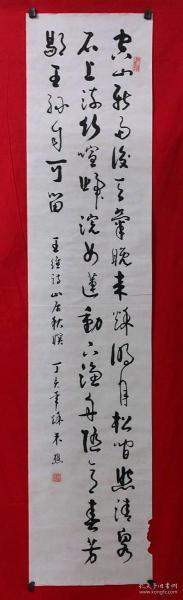 空山新雨後天氣晚來秋明月松間照清泉
石上流竹喧歸浣女蓮動下漁舟隨意春芳
歇王孫自可留
王維詩山居秋暝 丁亥年秋
孔夫子旧书网